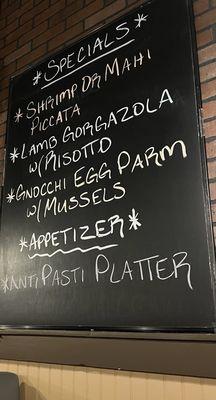 *SPECIALS*
*SHRIMP OR MAHI
PICCATA
*LAMB GORGAZOLA
W/RISOTTO
*GNOCCHI EGG PARM
W/MUSSELS
*APPETIZER*
*ANTIPASTI PLATTER